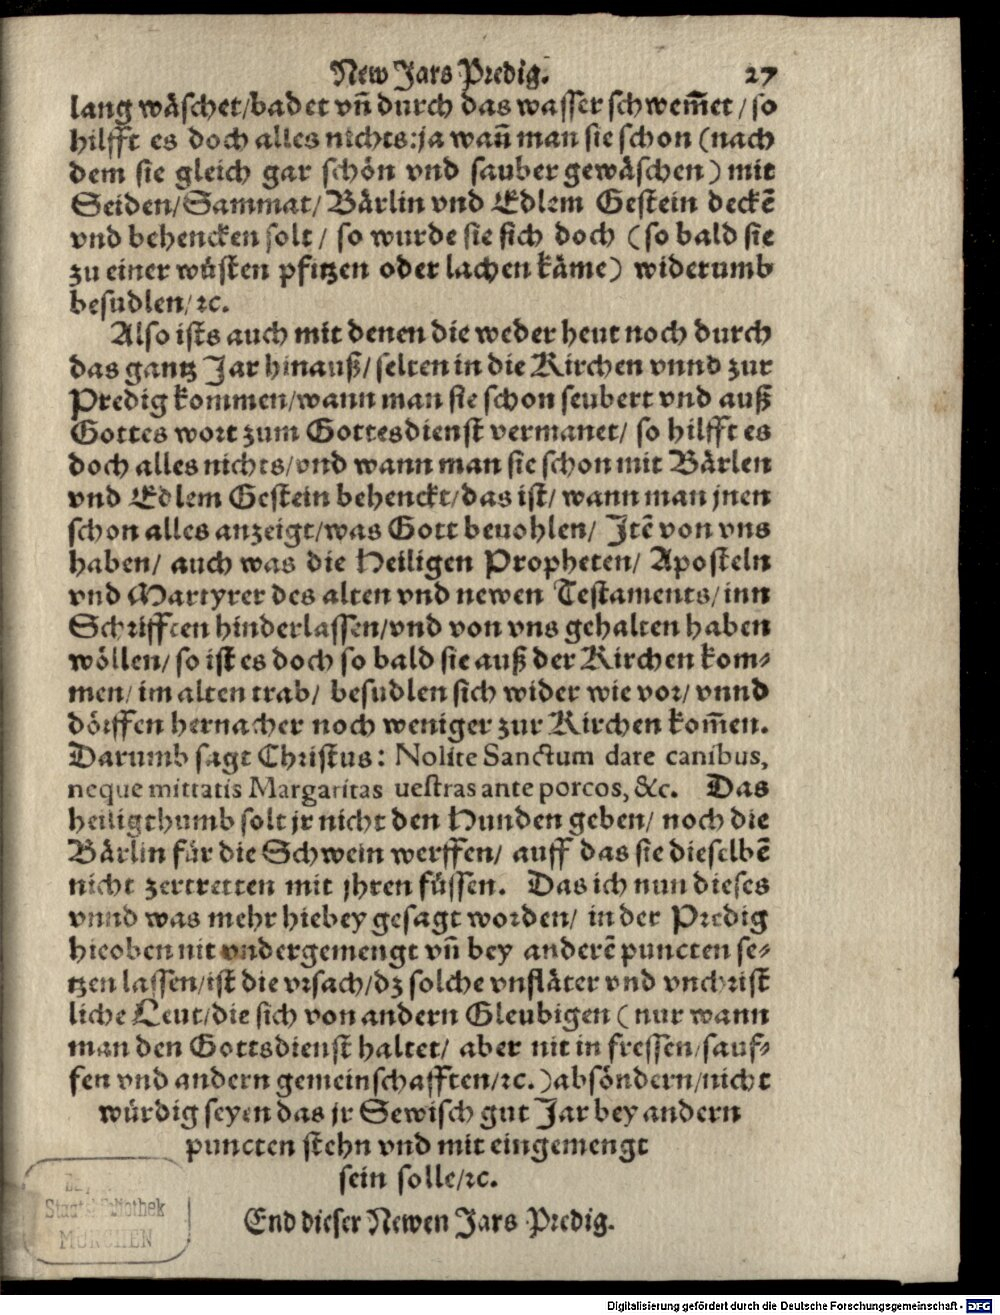 New Jars Predig. 27
lang wäschet/badet vn̄ durch das wasser schwem̄et / so
hilfft es doch alles nichts: ja wan̄ man sie schon (nach
dem sie gleich gar schön vnd sauber gewäschen) mit
Seiden/Sammat/ Bärlin vnd Edlem Gestein deckē
vnd behencken solt / so wurde sie sich doch (so bald sie
zu einer wüsten pfitzen oder lachen käme) widerumb
besudlen/ꝛc.
Also ists auch mit denen die weder heut noch durch
das gantz Jar hinauß/ selten in die Kirchen vnnd zur
Predig kommen/wann man sie schon seubert vnd auß
Gottes wort zum Gottesdienst vermanet/ so hilfft es
doch alles nichts/vnd wann man sie schon mit Bärlen
vnd Edlem Gestein behenckt/das ist/ wann man jnen
schon alles anzeigt/was Gott beuohlen/ Jtē von vns
haben/ auch was die Heiligen Propheten/ Aposteln
vnd Martyrer des alten vnd newen Testaments/inn
Schrifften hinderlassen/vnd von vns gehalten haben
wöllen/ so ist es doch so bald sie auß der Kirchen kom⸗
men/ im alten trab/ besudlen sich wider wie vor/ vnnd
dörffen hernacher noch weniger zur Kirchen kom̄en.
Darumb sagt Christus: Nolite Sanctum dare canibus,
neque mittatis Margaritas uestras ante porcos, &c. Das
heiligthumb solt jr nicht den Hunden geben/ noch die
Bärlin für die Schwein werffen/ auff das sie dieselbē
nicht zertretten mit jhren füssen. Das ich nun dieses
vnnd was mehr hiebey gesagt worden/ in der Predig
hieoben nit vndergemengt vn̄ bey anderē puncten se⸗
tzen lassen/ist die vrsach/dz solche vnfläter vnd vnchrist
liche Leut/die sich von andern Gleubigen (nur wann
man den Gottsdienst haltet/ aber nit in fressen/sauf⸗
fen vnd andern gemeinschafften/ꝛc.)absöndern/nicht
würdig seyen das jr Sewisch gut Jar bey andern
puncten stehn vnd mit eingemengt
sein solle/ꝛc.
End dieser Newen Jars Predig.
Staatsbibliothek
MÜNCHEN
Digitalisierung gefördert durch die Deutsche Forschungsgemeinschaft - DFG